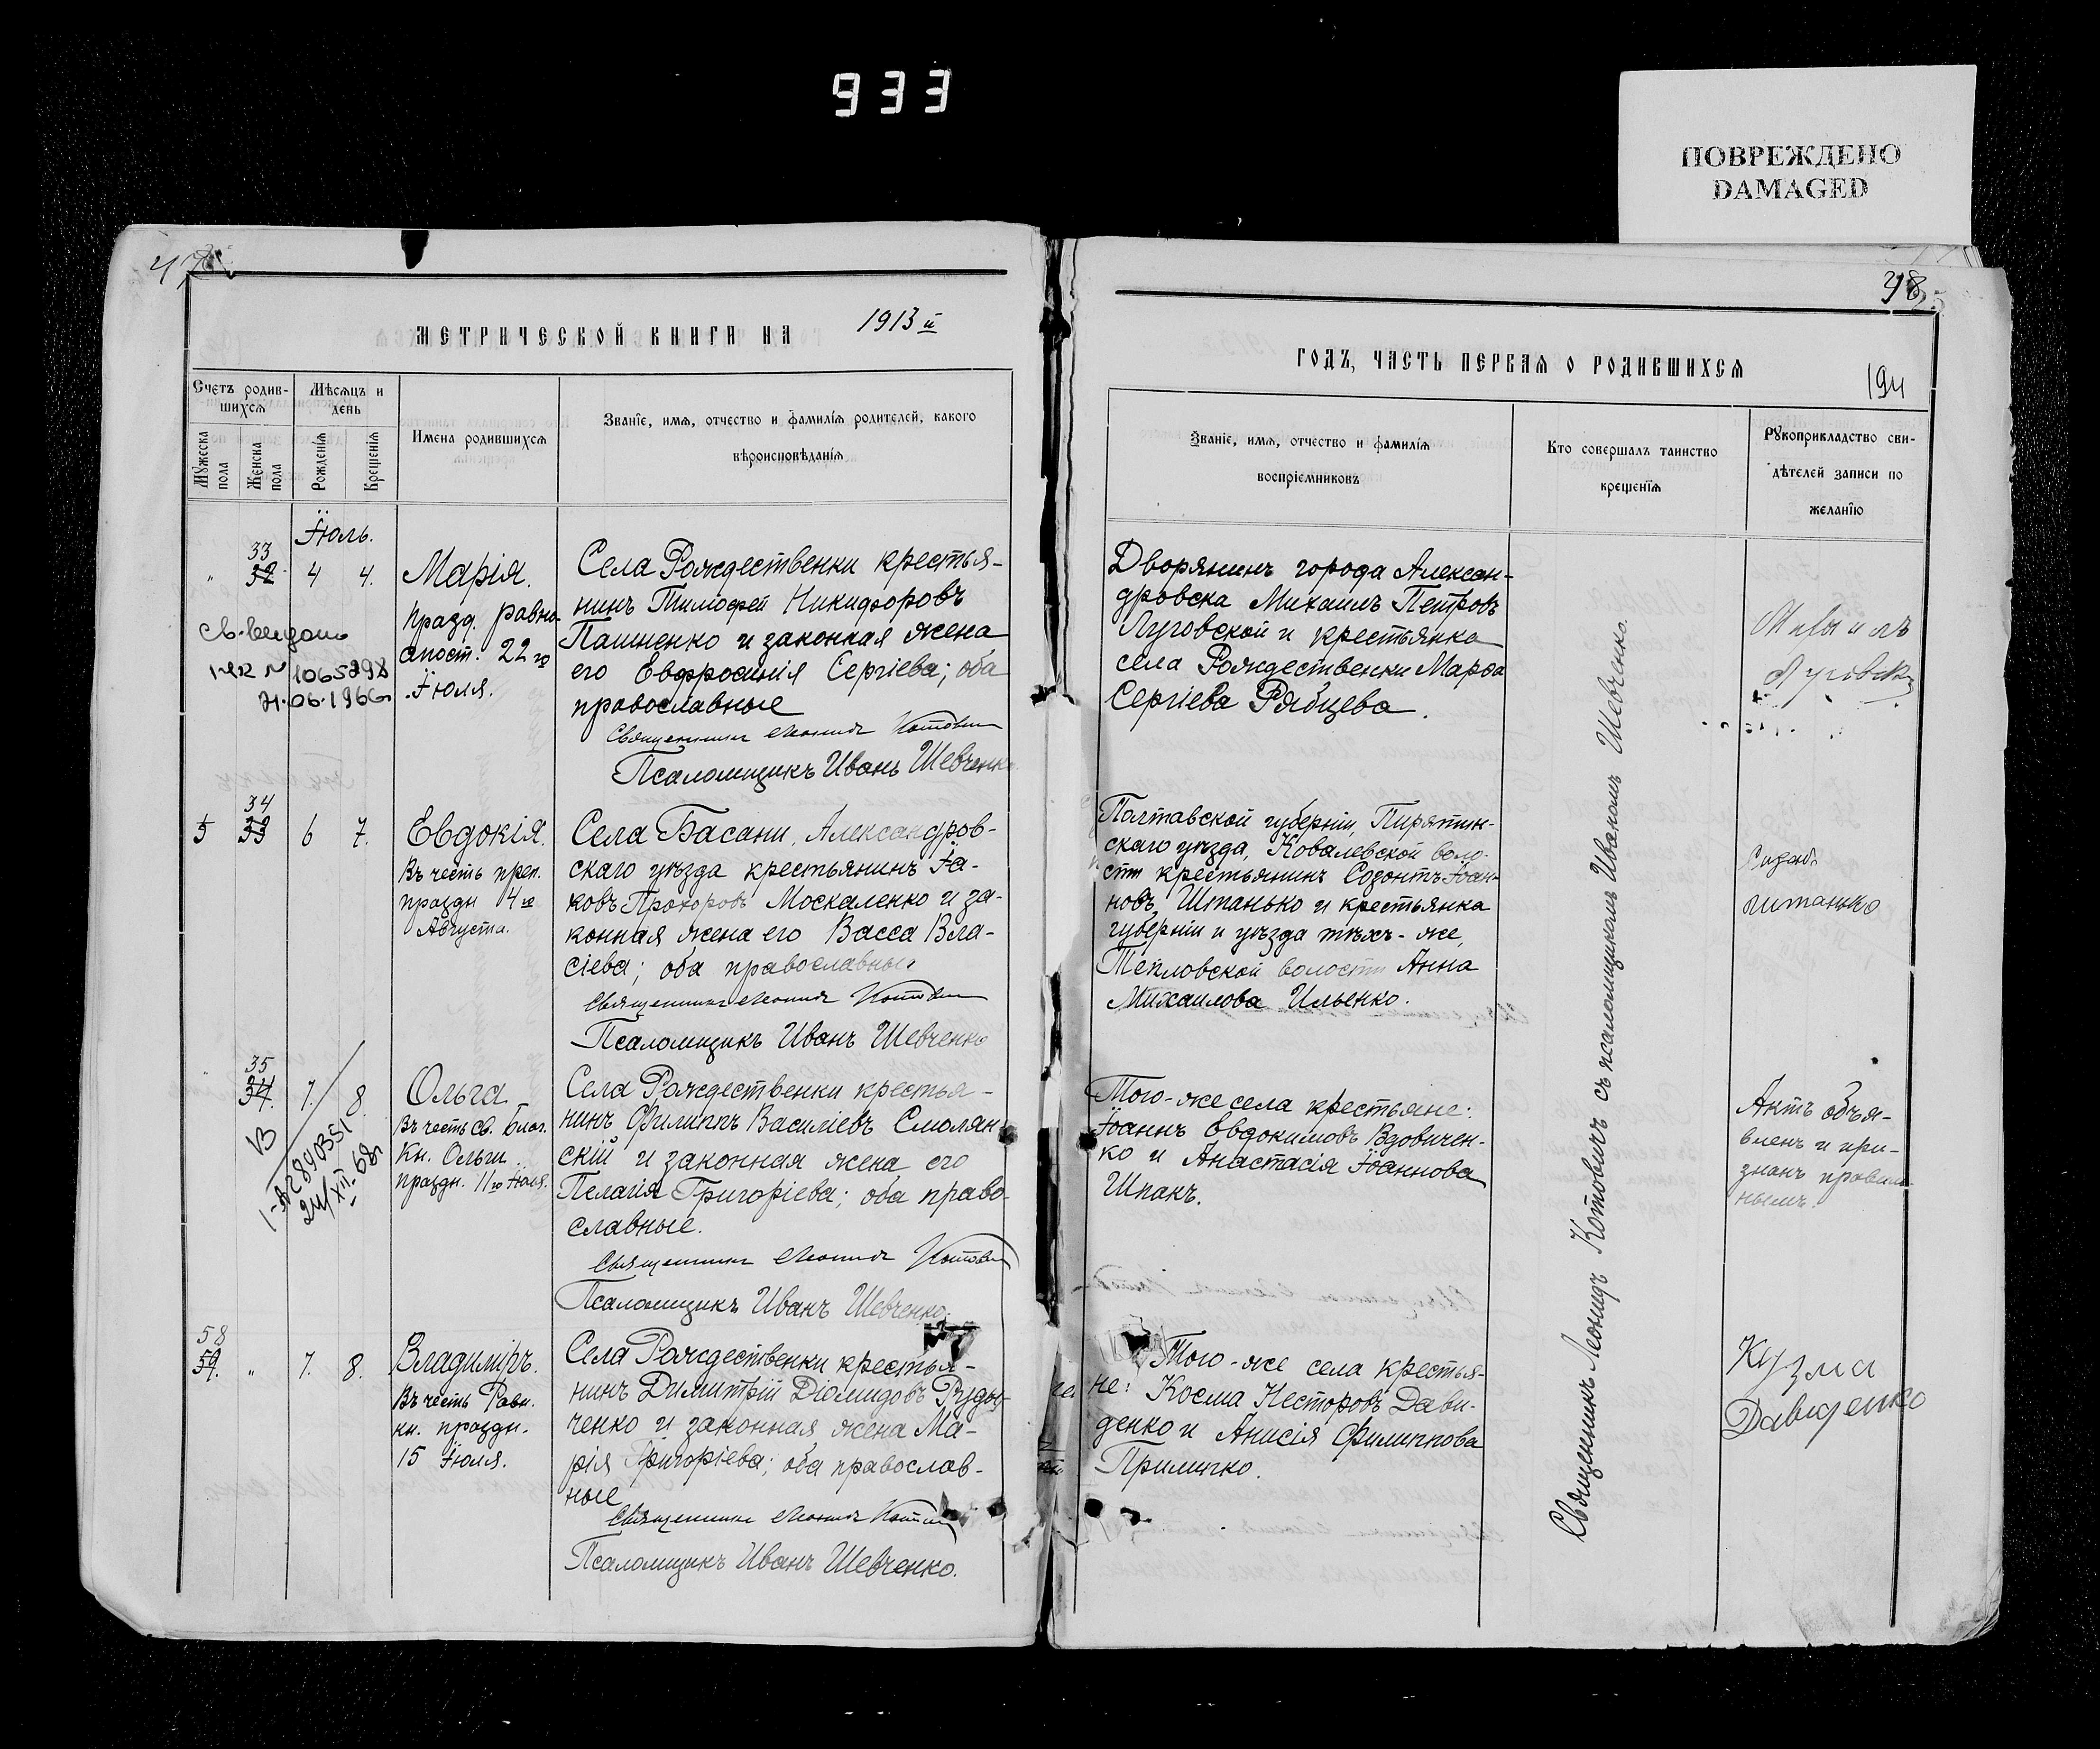 933
ПОВРЕЖДЕНО
DAMAGED
МЕТРИЧЕСКОЙ КНИГИ НА 1913 й
Счетъ родив-
шихся
Мѣсяцъ и
день
Мужеска
пола
Женска
пола
Рожденія
Крещенія
Имена родившихся
Званіе, имя, отчество и фамилія родителей, какого
вѣроисповѣданія
Іюль.
33
32. 4 4.
Марія.
празд. равно-
апост. 22 го
Іюля.
1-ЯК № 1065298
21.06.1966г
Села Рождественки крестья-
нинъ Тимофей Никифоровъ
Пашненко и законная жена
его Евфросинія Сергіева; оба
православные
Священникъ Леонидъ Котовичъ
Псаломщикъ Иванъ Шевченко
34
33 6 7.
Евдокія.
Въ честь преп.
праздн 04 го
Августа.
Села Басани, Александров-
скаго уѣзда крестьянинъ Іа-
ковъ Прохоровъ Москаленко и за-
конная жена его Васса Вла-
сіева; оба православные
Священникъ Леонидъ Котовичъ
Псаломщикъ Иванъ Шевченко
35
34. 7. 8.
Ольга
Въ честь св. Благ.
Кн. Ольги.
праздн. 11 го Іюля.
24/XII-68г
Села Рождественки крестья-
нинъ Филиппъ Василіевъ Смолян-
скій и законная жена его
Пелагія Григоріева; оба право-
славные.
Священникъ Леонидъ Котовичъ
Псаломщикъ Иванъ Шевченко.
58
59. " 7. 8.
Владиміръ.
Въ честь Равн.
кн. праздн.
15 Іюля.
Села Рождественки крестья-
нинъ Димитрій Діомидовъ
ченко и законная жена Ма-
рія Григоріева; оба православ-
ные
Священникъ Леонидъ Котовичъ
Псаломщикъ Иванъ Шевченко.
ГОДЪ, ЧАСТЬ ПЕРВАЯ О РОДИВШИХСЯ
194
Званіе, имя, отчество и фамилія
воспріемниковъ
Кто совершалъ таинство
крещенія
Рукоприкладство сви-
дѣтелей записи по
желанію
Дворянинъ города Алексан-
дровска Михаилъ Петровъ
Луговской и крестьянка
села Рождественки Марфа
Сергіева Рябцева.
Полтавской губерніи, Пирятин-
скаго уѣзда, Ковалевской воло-
сти крестьянинъ Созонтъ Іоан-
новъ Штанько и крестьянка
губерніи и уѣзда тѣхъ-же,
Тепловской волости Анна
Михаилова Ильенко.
Штанько
Того-же села крестьяне:
Іоаннъ Евдокимовъ Вдовичен-
ко и Анастасія Іоаннова
Шпакъ.
Актъ объя-
вленъ и при-
знанъ правиль-
нымъ.
Того-же села крестья-
не: Косма Несторовъ Дави-
денко и Анисія Филиппова
Прилипко.
Кузма
Давиденко
Священникъ Леонидъ Котовичъ съ псаломщикомъ Иваномъ Шевченко.